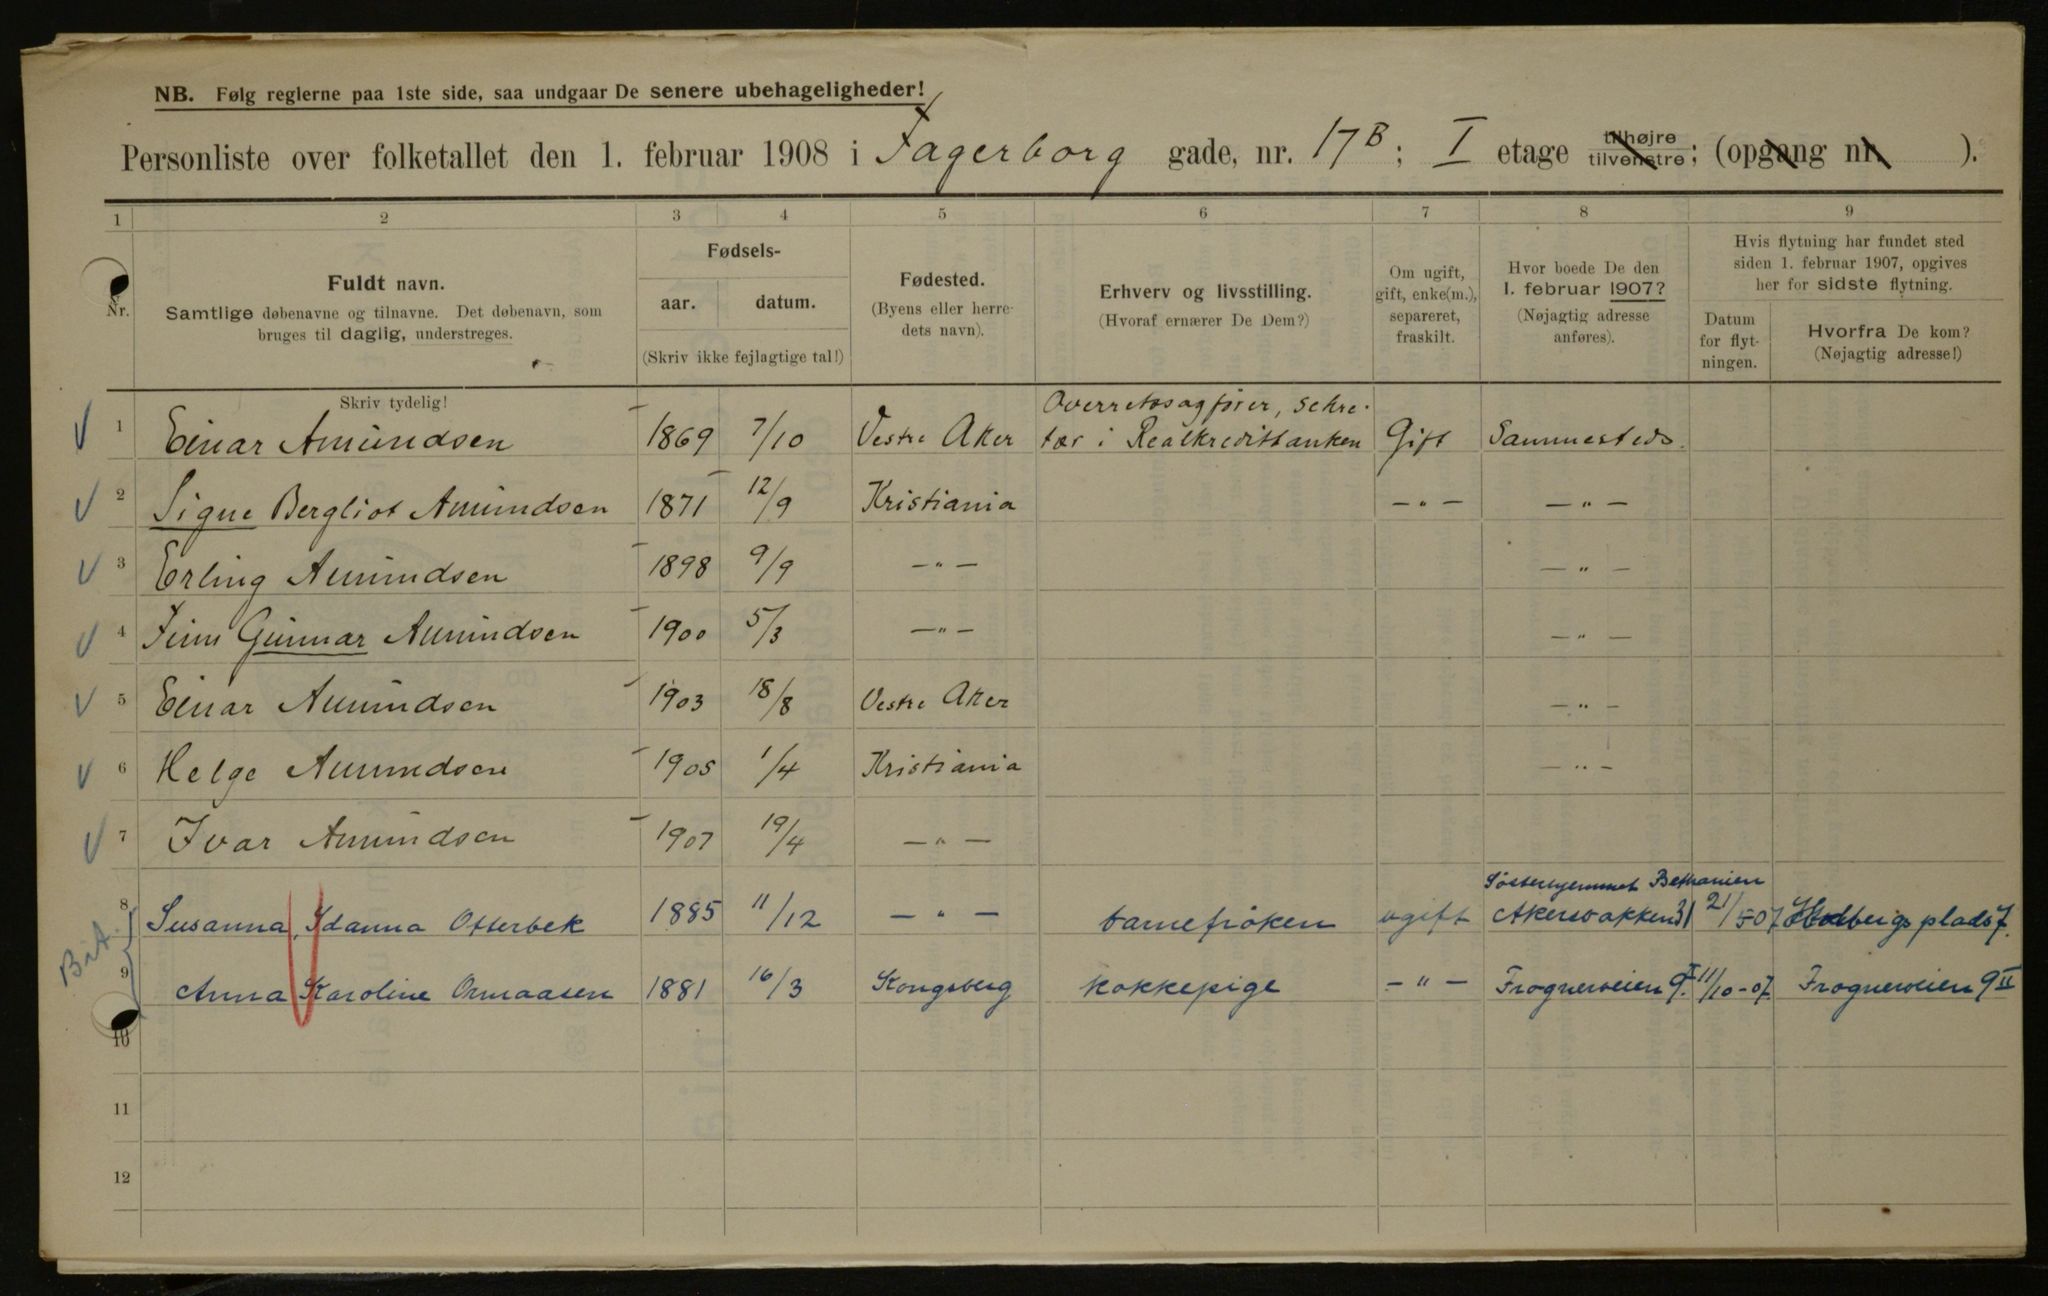 NB. Følg reglerne paa 1ste side, saa undgaar De senere ubehageligheder!
Personliste over folketallet den 1. februar 1908 i Fagerborg gade, nr. 17B; I etage tilhøjre tilvenstre; (opgang nr. ).
1 2 3 4 5 6 7 8 9
Nr.
Fuldt navn.
Samtlige døbenavne og tilnavne. Det døbenavn, som
bruges til daglig, understreges.
Skriv tydelig!
Fødsels-
aar. datum.
(Skriv ikke fejlagtige tal!)
Fødested.
(Byens eller herre-
dets navn).
Erhverv og livsstilling.
(Hvoraf ernærer De Dem?)
Om ugift,
gift, enke(m.),
separeret,
fraskilt.
Hvor boede De den
1. februar 1907?
(Nøjagtig adresse
anføres).
Hvis flytning har fundet sted
siden 1. februar 1907, opgives
her for sidste flytning.
Datum
for flyt-
ningen.
Hvorfra De kom?
(Nøjagtig adresse!)
1 Einar Amundsen 1869 7/10 Vestre Aker Overretssagfører, sekre-
tær i Realkreditbanken Gift Sammesteds.
2 Signe Bergliot Amundsen 1871 12/9 Kristiania — " — — " —
3 Erling Amundsen 1898 9/9 — " — — " —
4 Finn Gunnar Amundsen 1900 5/3 — " — — " —
5 Einar Amundsen 1903 18/8 Vestre Aker — " —
6 Helge Amundsen 1905 1/4 Kristiania — " —
7 Ivar Amundsen 1907 19/4 — " —
Søsterhjemmet Bethanien
8 Susanna Idanna Otterbek 1885 11/12 — " — barnefrøken ugift Akersbakken 31 21/5-07 Holbergs plads 7.
9 Anna Karoline Ormaasen 1881 16/3 Kongsberg kokkepige — " — Frognerveien 9. 11/10-07 Frognerveien 9 II
10
11
12